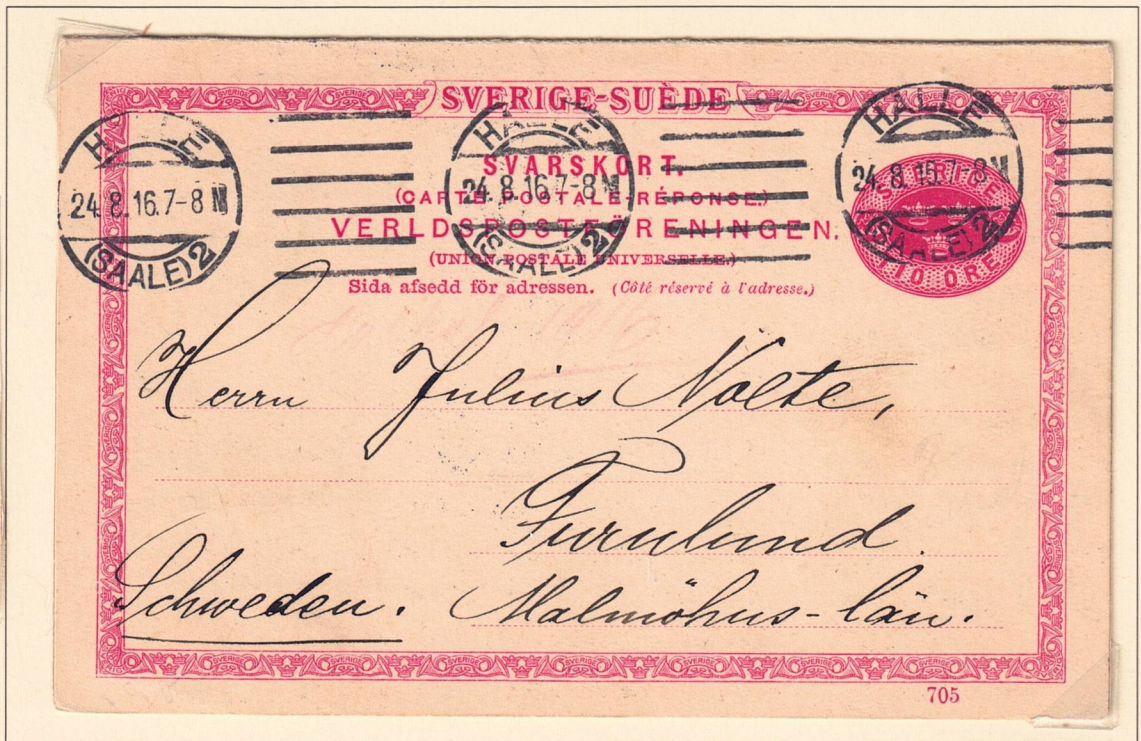 SVERIGE-SUÈDE
HALLE
24.8.16.7-8 N
(SAALE) 2
HALLE
24.8.16.7-8 N
(SAALE) 2
HALLE
24.8.16.7-8 N
(SAALE) 2
SVERIGE
10 ÖRE
SVARSKORT.
(CARTE POSTALE-RÉPONSE)
VERLDSPOSTFÖRENINGEN.
(UNION POSTALE UNIVERSELLE.)
Sida afsedd för adressen. (Côté réservé à l'adresse.)
Herrn Julius Nolte,
Furulund.
Schweden. Malmöhus-län.
705